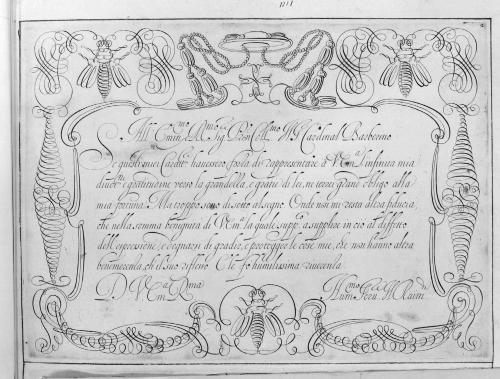 All' Emin.mo e R.mo Sig.r Pron Coll.mo Il S. Cardinal Barberino
Se questi miei Caratt.ri havessero forza di rappresentare à V. Em.a l'infinita mia
divot.ne e gratitudine verso la grandezza, e gratie di lei, ne terrei grand' obligo alla
mia fortuna. Ma troppo sono di sotto al segno. Onde non mi resta altra fiducia,
che nella somma benignità di V. Em.a la quale supp.co à supplire in ciò al difetto
dell' espressione, e degnarsi di gradire, e proteggere le cose mie, che non hanno altra
benemerenza, ch' il suo riflesso. E le fo humilissima riverenza.
D. V. Em.a R.ma
Hum.mo Ser.